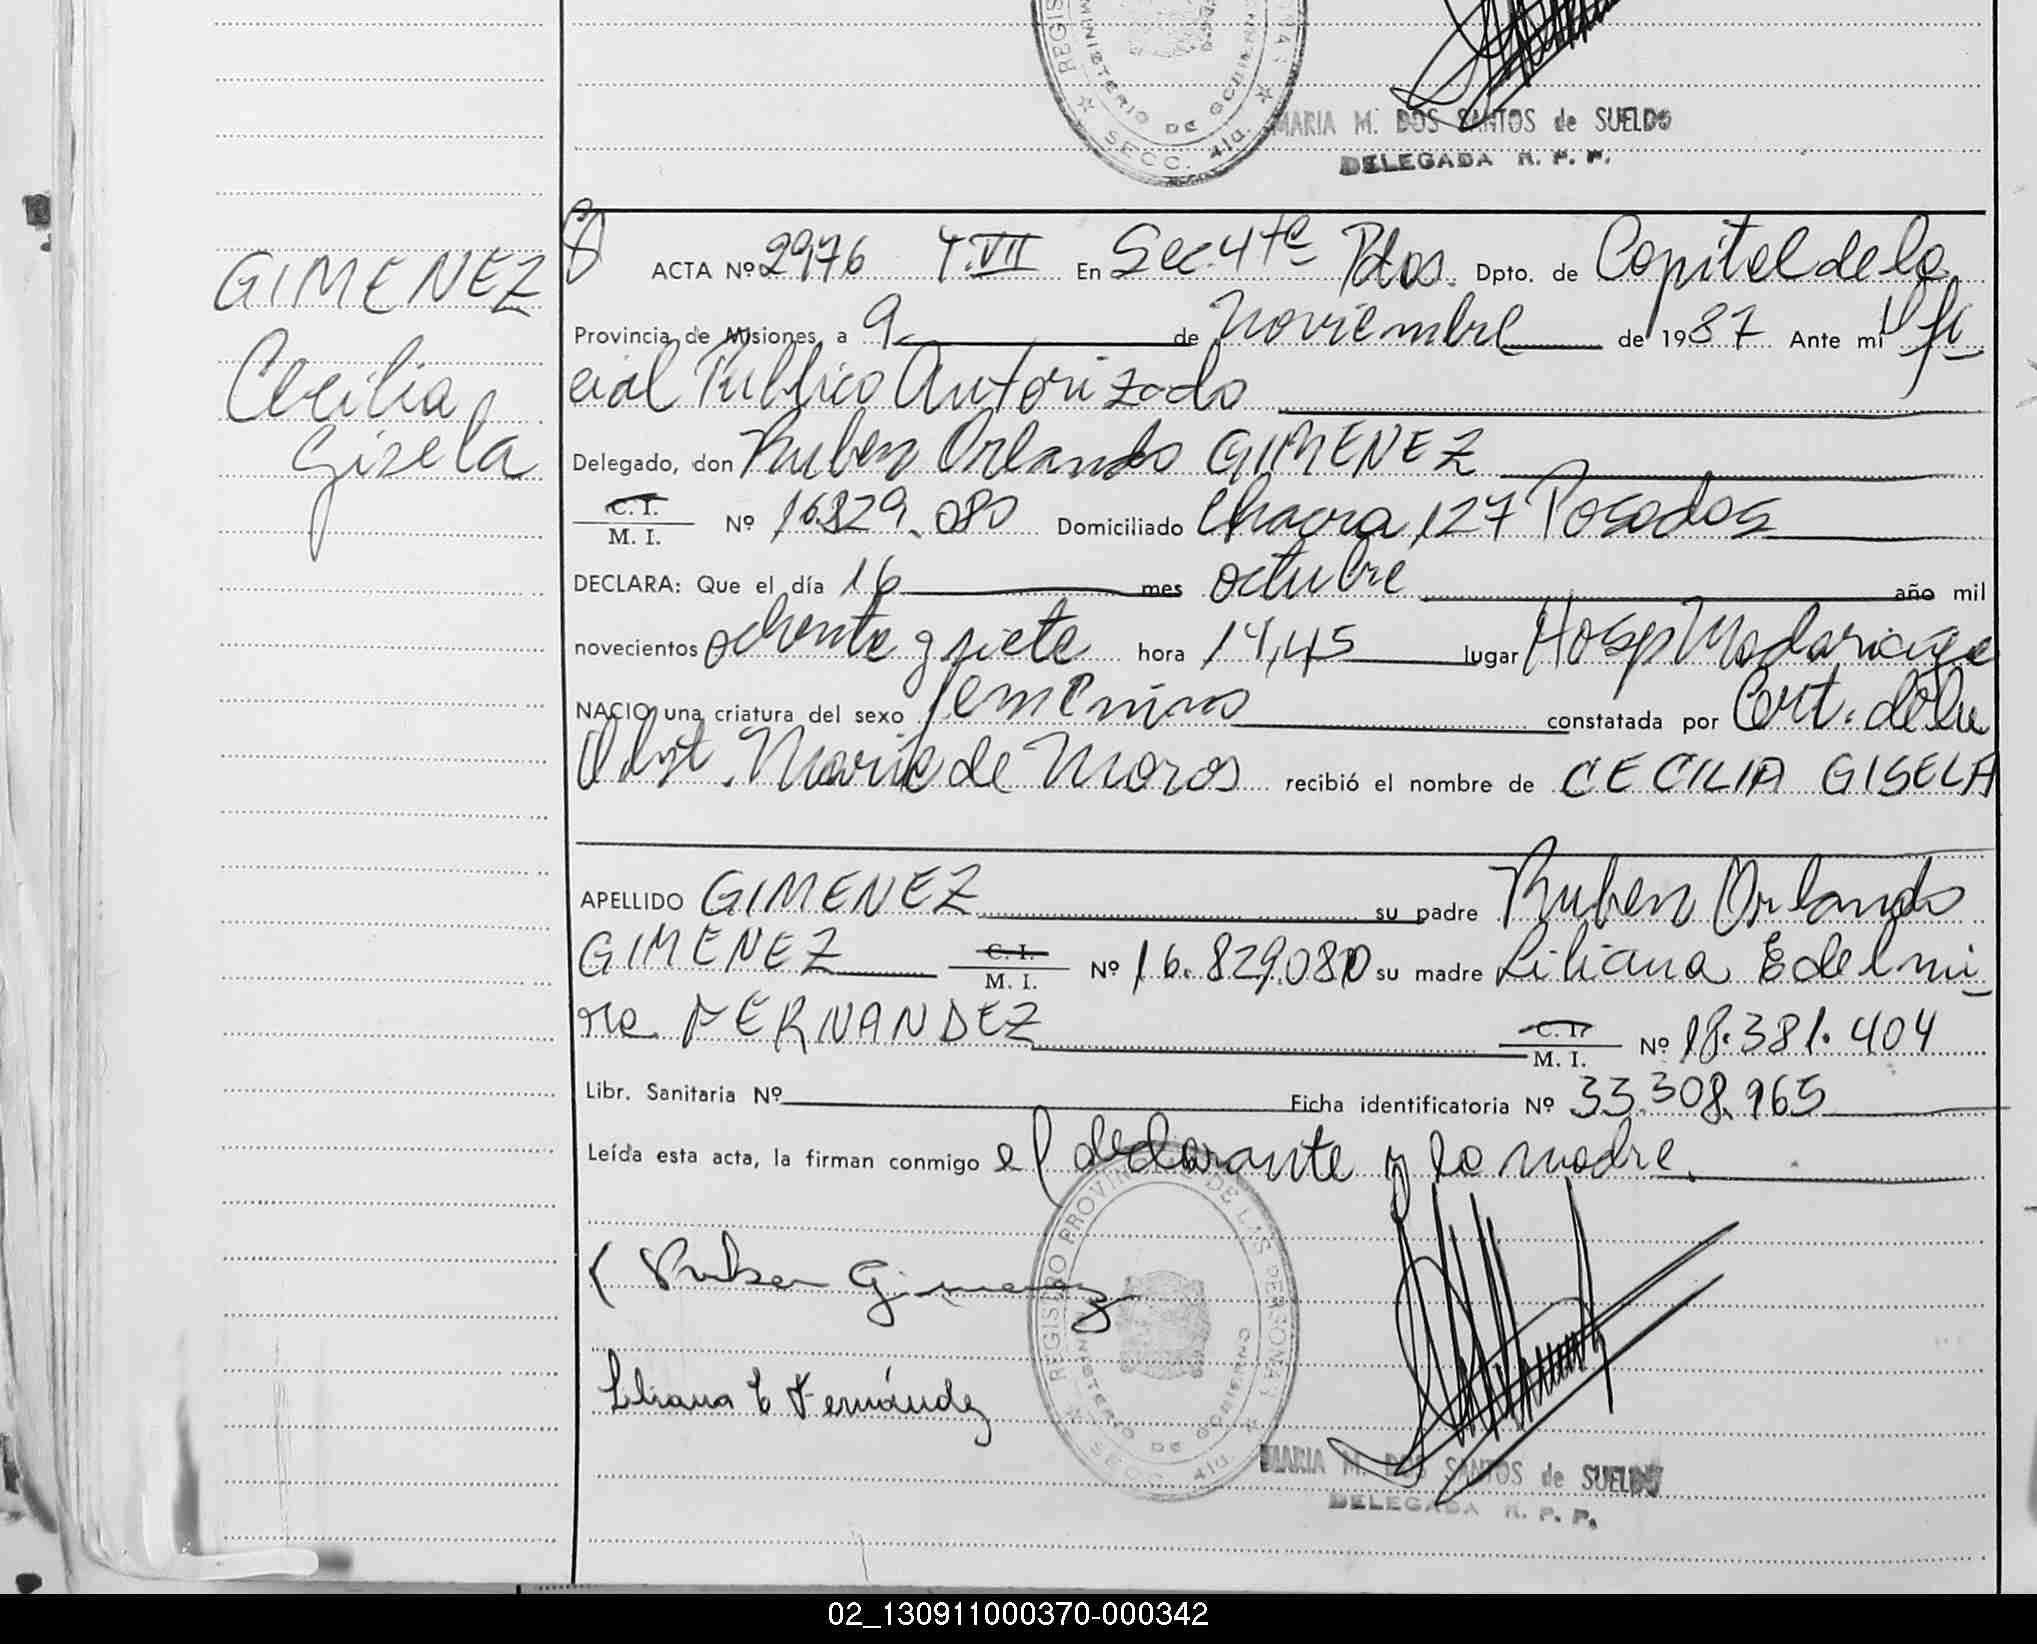 REGIS
MINISTERIO DE GOBIERNO
SECC. 4ta.
MARIA M. DOS SANTOS de SUELDO
DELEGADA R. P. P.
GIMENEZ
Cecilia
Gisela
ACTA Nº 2976 T. VII En Sec. 4ta Pdas. Dpto. de Capital de la
Provincia de Misiones, a 9 de Noviembre de 1987 Ante mí Ofi
cial Publico Autorizado
Delegado, don Ruben Orlando GIMENEZ
C. I.
M. I. Nº 16.829.080 Domiciliado Chacra 127 Posadas
DECLARA: Que el día 16 mes octubre año mil
novecientos ochenta y siete hora 14,45 lugar Hosp Madariaga
NACIO una criatura del sexo femenino constatada por Cert. de la
Obst. Maria de Moros recibió el nombre de CECILIA GISELA
APELLIDO GIMENEZ su padre Ruben Orlando
GIMENEZ C. I. M. I. Nº 16.829.080 su madre Liliana Edelmi
ra FERNANDEZ C. I. M. I. Nº 18.381.404
Libr. Sanitaria Nº Ficha identificatoria Nº 33.308.965
Leída esta acta, la firman conmigo el declarante y la madre.
Ruben Gimenez
REGISTRO PROVINCIAL DE LAS PERSONAS
MINISTERIO DE GOBIERNO
SECC. 4ta.
Liliana E Fernández
MARIA M. DOS SANTOS de SUELDO
DELEGADA R. P. P.
02_130911000370-000342